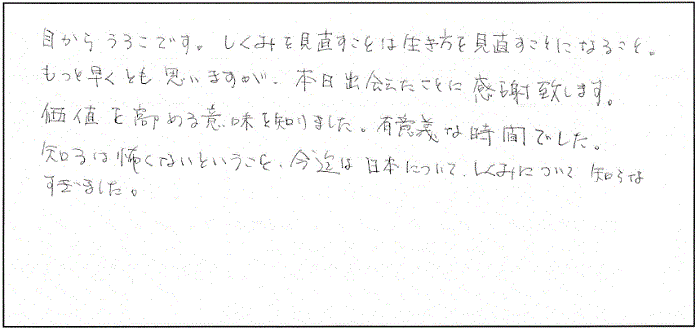 目からうろこです。しくみを見直すことは生き方を見直すことになること。
もっと早くとも思いますが、本日出会えたことに感謝致します。
価値を高める意味を知りました。有意義な時間でした。
知るは怖くないということ、今迄は日本について、しくみについて知らな
すぎました。